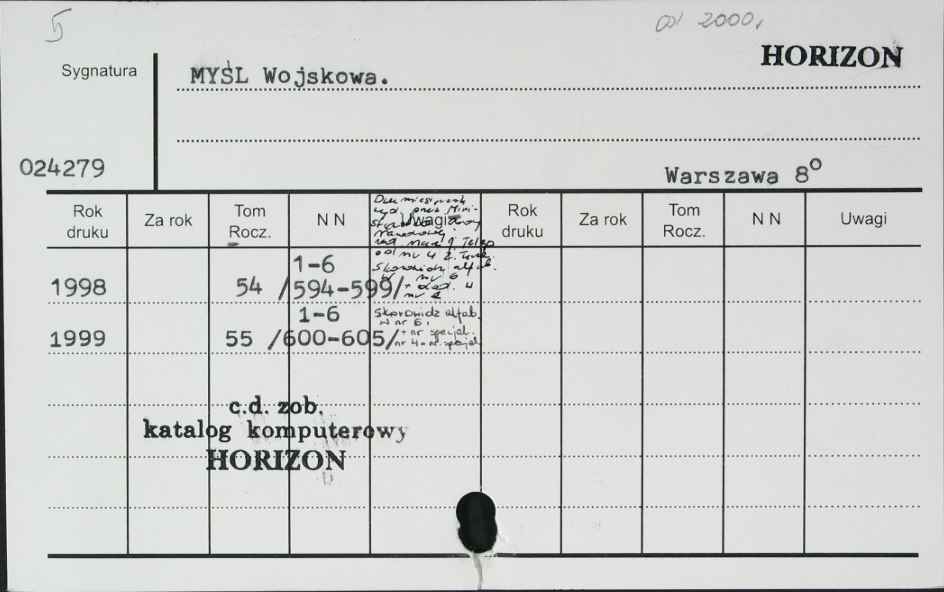 5
od 2000,
HORIZON
Sygnatura
MYŚL Wojskowa.
024279
Warszawa 8°
Rok druku
Za rok
Tom Rocz.
N N
Uwagi
Rok druku
Za rok
Tom Rocz.
N N
Uwagi
Dwumiesięcznik
nr 4 z.
Skorowidz alfab.
nr 6
1998 54 /594-599/
1-6
1999 55 /600-605/
1-6
Skorowidz alfab.
w nr 6.
+ nr specjal.
nr 4 = nr specjal.
c.d. zob.
katalog komputerowy
HORIZON